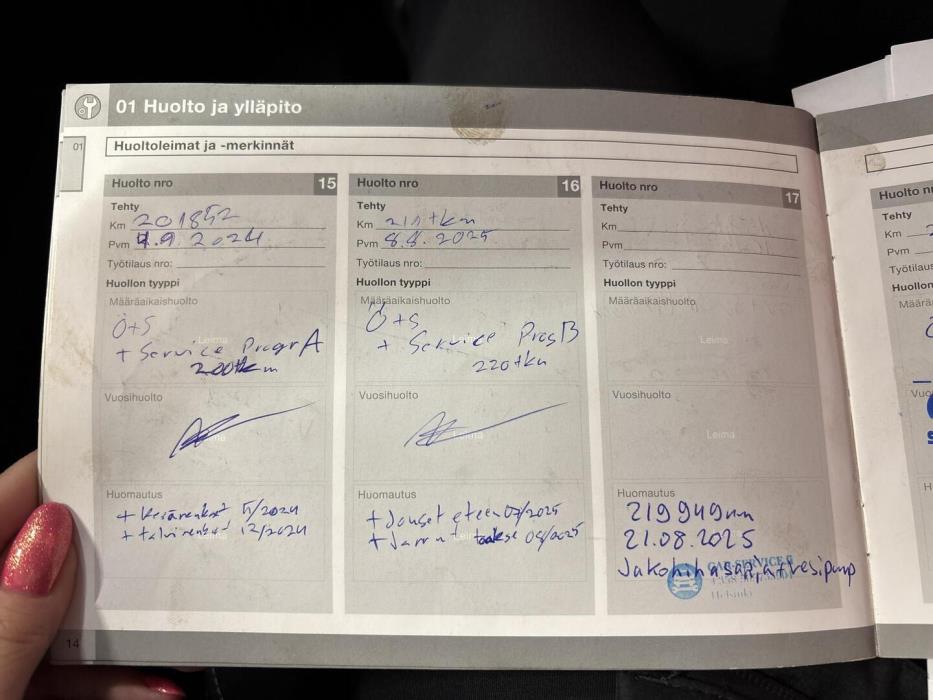 01 Huolto ja ylläpito
01
Huoltoleimat ja -merkinnät
Huolto nro 15
Tehty
Km 201852
Pvm 4.9.2024
Työtilaus nro:
Huollon tyyppi
Määräaikaishuolto
Ö+S
+ Service Progr A
200tkm
Leima
Vuosihuolto
Leima
Huomautus
+ Kesärenkaat 5/2024
+ talvirenkaat 12/2024
Huolto nro 16
Tehty
Km 211 tkm
Pvm 8.8.2025
Työtilaus nro:
Huollon tyyppi
Määräaikaishuolto
Ö+S
+ Service Prog B
220tkm
Vuosihuolto
Leima
Huomautus
+ Jouset eteen 07/2025
+ Jarrut taakse 08/2025
Huolto nro 17
Tehty
Km
Pvm
Työtilaus nro:
Huollon tyyppi
Määräaikaishuolto
Leima
Vuosihuolto
Leima
Huomautus
219949km
21.08.2025
Jakohihasarja+vesipump
Helsinki
14
Huolto
Tehty
Km
Pvm
Työtilaus
Huollon